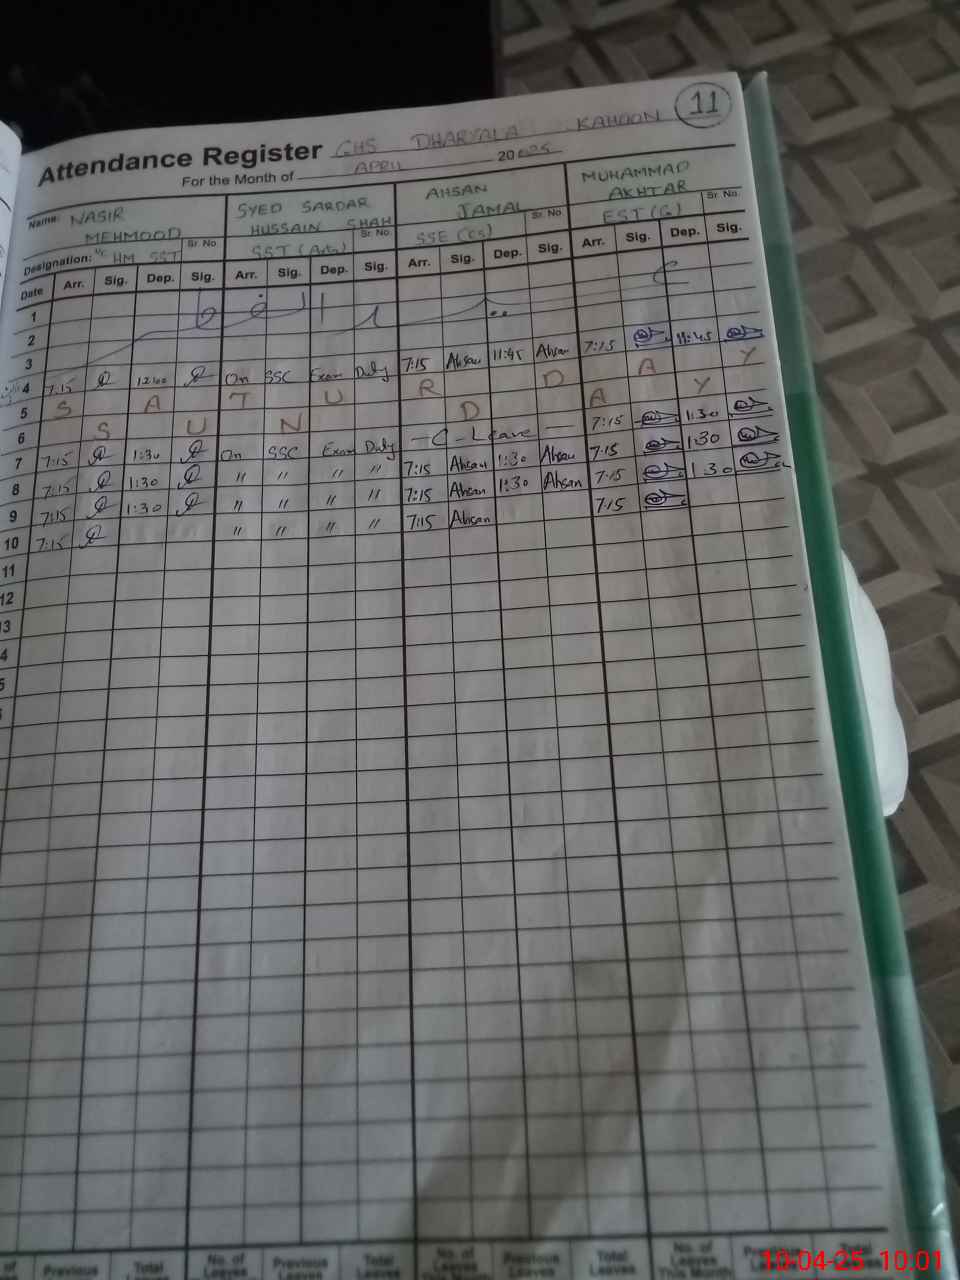 11
Attendance Register GHS DHARYALA KAHOON
For the Month of APRIL 2025
Name: NASIR MEHMOOD SYED SARDAR HUSSAIN SHAH AHSAN JAMAL MUHAMMAD AKHTAR
Designation: HM SST Sr. No SST (Arts) Sr. No. SSE (CS) Sr. No. EST (G) Sr. No.
Date Arr. Sig. Dep. Sig. Arr. Sig. Dep. Sig. Arr. Sig. Dep. Sig. Arr. Sig. Dep. Sig.
1
2
3
4 7:15 12:00 On SSC Exam Duty 7:15 Ahsan 11:45 Ahsan 7:15 11:45
5 S A T U R D A Y
6 S U N D A Y
7 7:15 1:30 On SSC Exam Duty - C - Leave - 7:15 1:30
8 7:15 1:30 " " " " 7:15 Ahsan 1:30 Ahsan 7:15 1:30
9 7:15 1:30 " " " " 7:15 Ahsan 1:30 Ahsan 7:15 1:30
10 7:15 " " " " 7:15 Ahsan 7:15
11
12
13
4
5
of Previous Total No. of Leaves Previous Leaves Total Leaves No. of Leaves Previous Leaves Total Leaves No. of Leaves This Month Previous Leaves Total
10-04-25 10:01